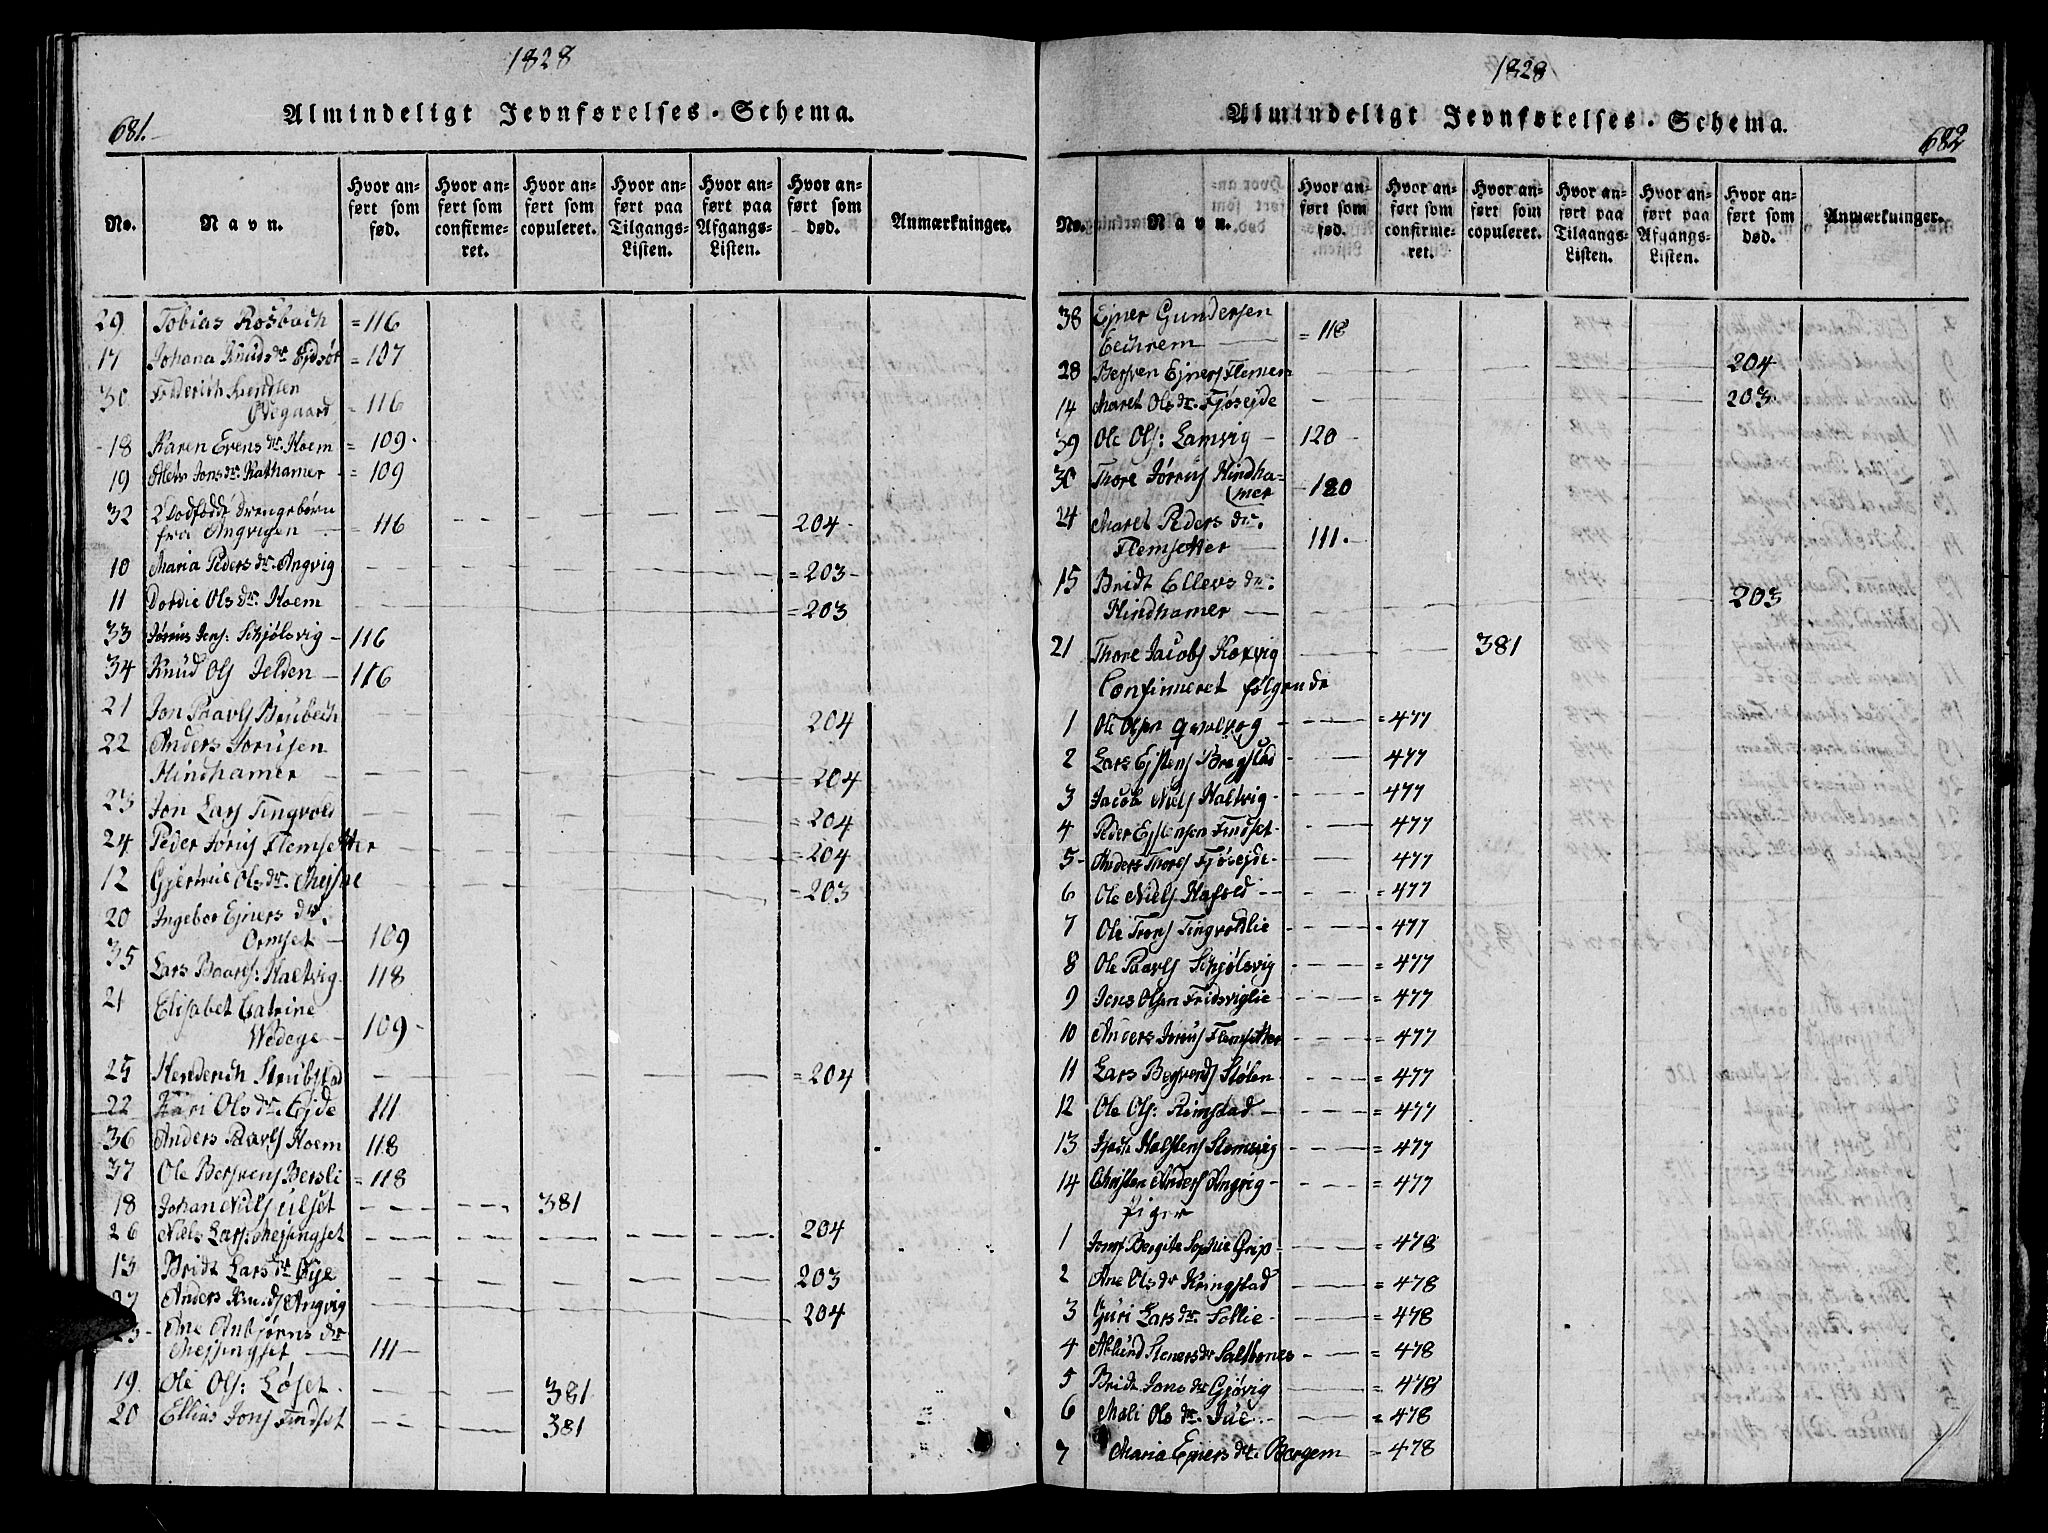 1828
681.
Almindeligt Jevnførelses-Schema.
No.
Navn.
Hvor anført som fød.
Hvor anført som confirmeret.
Hvor anført som copuleret.
Hvor anført paa Tilgangs-Listen.
Hvor anført paa Afgangs-Listen.
Hvor anført som død.
Anmærkninger.
29. Tobias Rosbach = 116
17 Johana Knudsdr. Ejdsør = 107
30. Friderich Svendsen
Ødegaard = 116
18 Karen Evensdr. Hoem = 109
19 Jonsdr. Kathamer = 109
32 2 dødfødde Drengebørn
fra Angvigen = 116 204
10 Maria Pedersdr. Angvig = 203
11 Dordie Olsdr. Hoem = 203
33 Jørus Jens: Schjølsvig 116
34 Knud Ols Jelden 116
21 Jon Paavls Brubech 204
22 Anders Jorusen
Hindhamer 204
23 Jon Lars Tingvold = 204
24 Peder Jørus Flemsetter = 204
12 Gjertrue Olsdr. Mejsne = 203
20 Ingebor Ejnersdr.
Ormset 109
35 Lars Baars: Haltvig 118
21 Elisabet Catrine
Wedege 109
25 Henderich Strubstad = 204
22 Kari Olsdr. Ejde 111
36 Anders Paavls Hoem 118
37 Ole Bersvens Bersli = 118
18 Johan Niels Ulset 381
26 Niels Lars: Mejsingset 204
13 Bridt Larsdr. Øye 203
27 Anders Knuds Angvig 204
23 Ane Anbjørnsdr.
Mejsingset 111
19. Ole Ols: Løset 381
20 Ellias Jons Findset 381
1828
682
Almindeligt Jevnførelses-Schema.
No.
Navn.
Hvor anført som fød.
Hvor anført som confirmeret.
Hvor anført som copuleret.
Hvor anført paa Tilgangs-Listen.
Hvor anført paa Afgangs-Listen.
Hvor anført som død.
Anmærkninger.
38 Ejner Gundersen
Eechrem = 118
28 Bersven Ejners Flemen 204
14 Maret Olsdr. Fjøsejde 203
39 Ole Ols: Lamvig 120
30 Thore Jørus Hindhamer
120
24 Maret Pedersdr.
Flemsetter 111.
15 Bridt Ellevsdr:
Hindhamer 203
21 Thore Jacobs Koxvig 381
Confirmeret følgende
1 Ole Olsen Qvalvog = 477
2 Lars Ejstens Bregstad 477
3 Jacob Niels Haltvig 477
4 Peder Ejstensen Findset 477
5 Anders Thores Fjøsejde 477
6 Ole Niels Hafsold = 477
7 Ole Trons Tingvoldlie = 477
8 Ole Paavls Schjølsvig = 477
9 Jens Olsen Fridsviglie = 477
10 Anders Jorus Flemsetter = 477
11 Lars Stølen = 477
12 Ole Ols: Remstad = 477
13 Halstens Stomvig = 477
14 Christen Anders Angvig = 477
Piger
1 Jomf Bergite Sophie Grip = 478
2 Ane Olsdr Kringstad = 478
3 Guri Larsdr. Sollie = 478
4 Stenersdr Saltbones = 478
5 Bridt Jonsdr Gjøvig = 478
6 Mali Olsdr. Jue = 478
7 Maria Ejnersdr. Bergem = 478